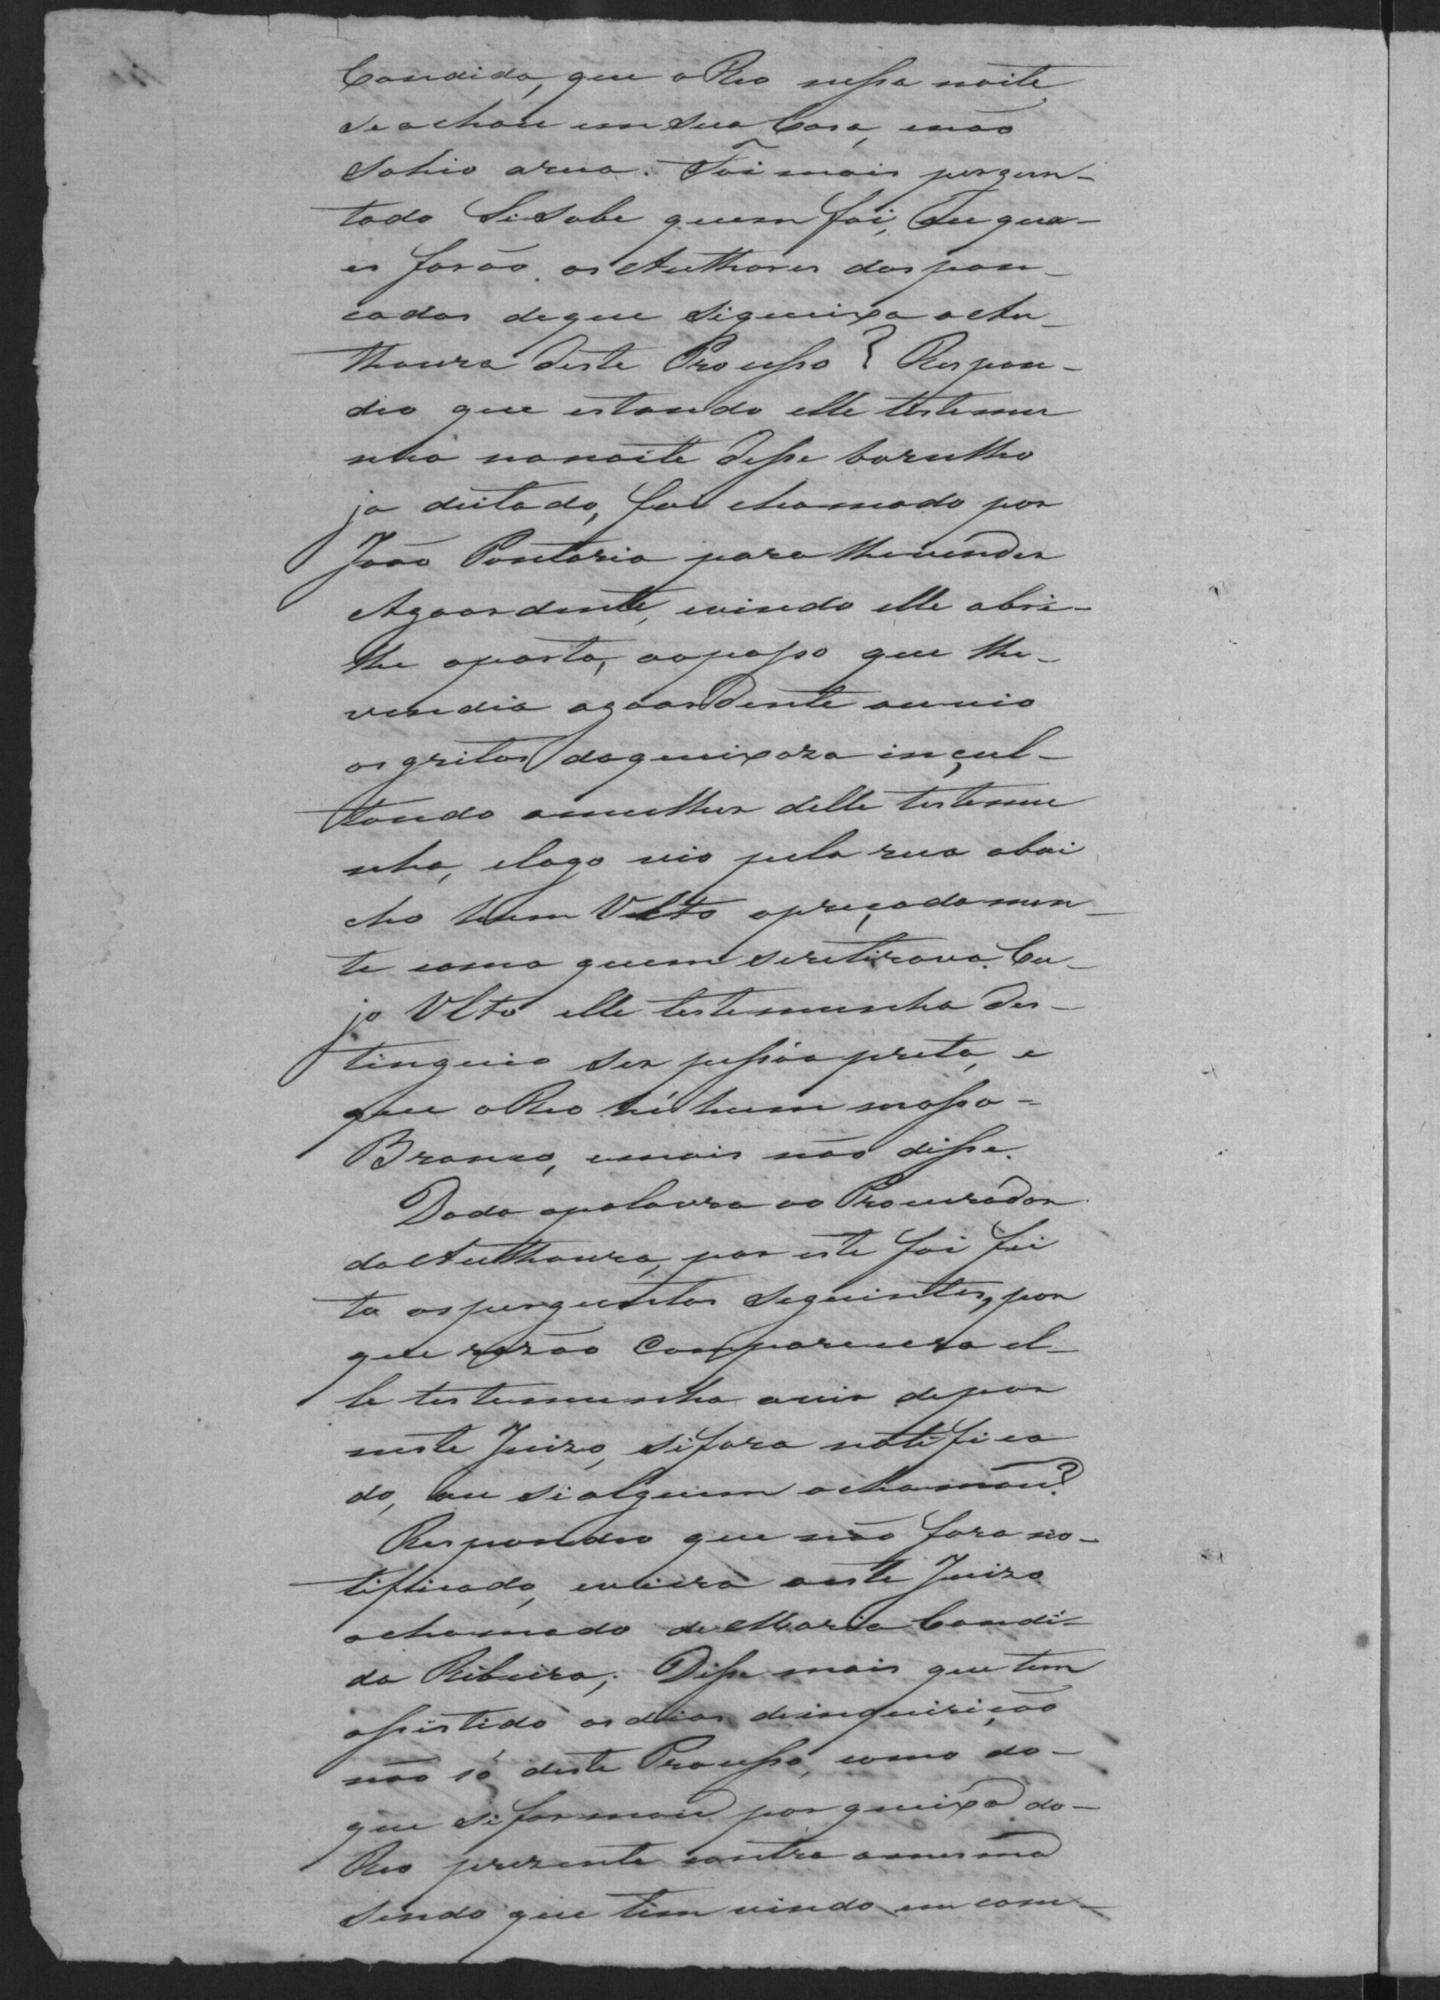 Candida, que o Reo nessa noite
se achou em sua Casa, enão
sahio arua. Foi mais pergun-
tado Sisabe quem foi, Ou qua-
es forão os Authores das pan-
cadas deque siqueixa a Au-
thoura deste Processo? Respon-
deo que estando elle testemu
nha nanoite desse barulho
ja deitado, foi chamado por
João Pontaria para lhevender
Agoardente, evindo elle abri-
lhe aporta, aopasso que lhe-
vendia agoardente ouvio
osgritos daqueixoza inçul-
tando amulher delle testemu
nha, elogo vio pela rua abai
cho hum Vulto apreçadamen-
te como quem seretirava. Cu-
jo Vlto elle testemunha des-
tinguio ser pessôa preta, e
que o Reo hé hum mosso-
Branco, emais não disse.
Dada apalavra ao Procurador
da Authoura, por este foi fei
ta asperguntas seguintes, por
que razão Comparecera el-
le testemunha avir depor
neste Juizo, sifora notifica
do, ou si alguem achamou?
Respondeo que não fora no-
tificado, evieira aeste Juizo
achamado de Maria Candi-
da Ribeira; Disse mais que tem
assistido asdias deinquirição
não só deste Processo, como do-
que siformou por queixa do-
Reo prezente contra amesma
sendo que tem vindo em com-